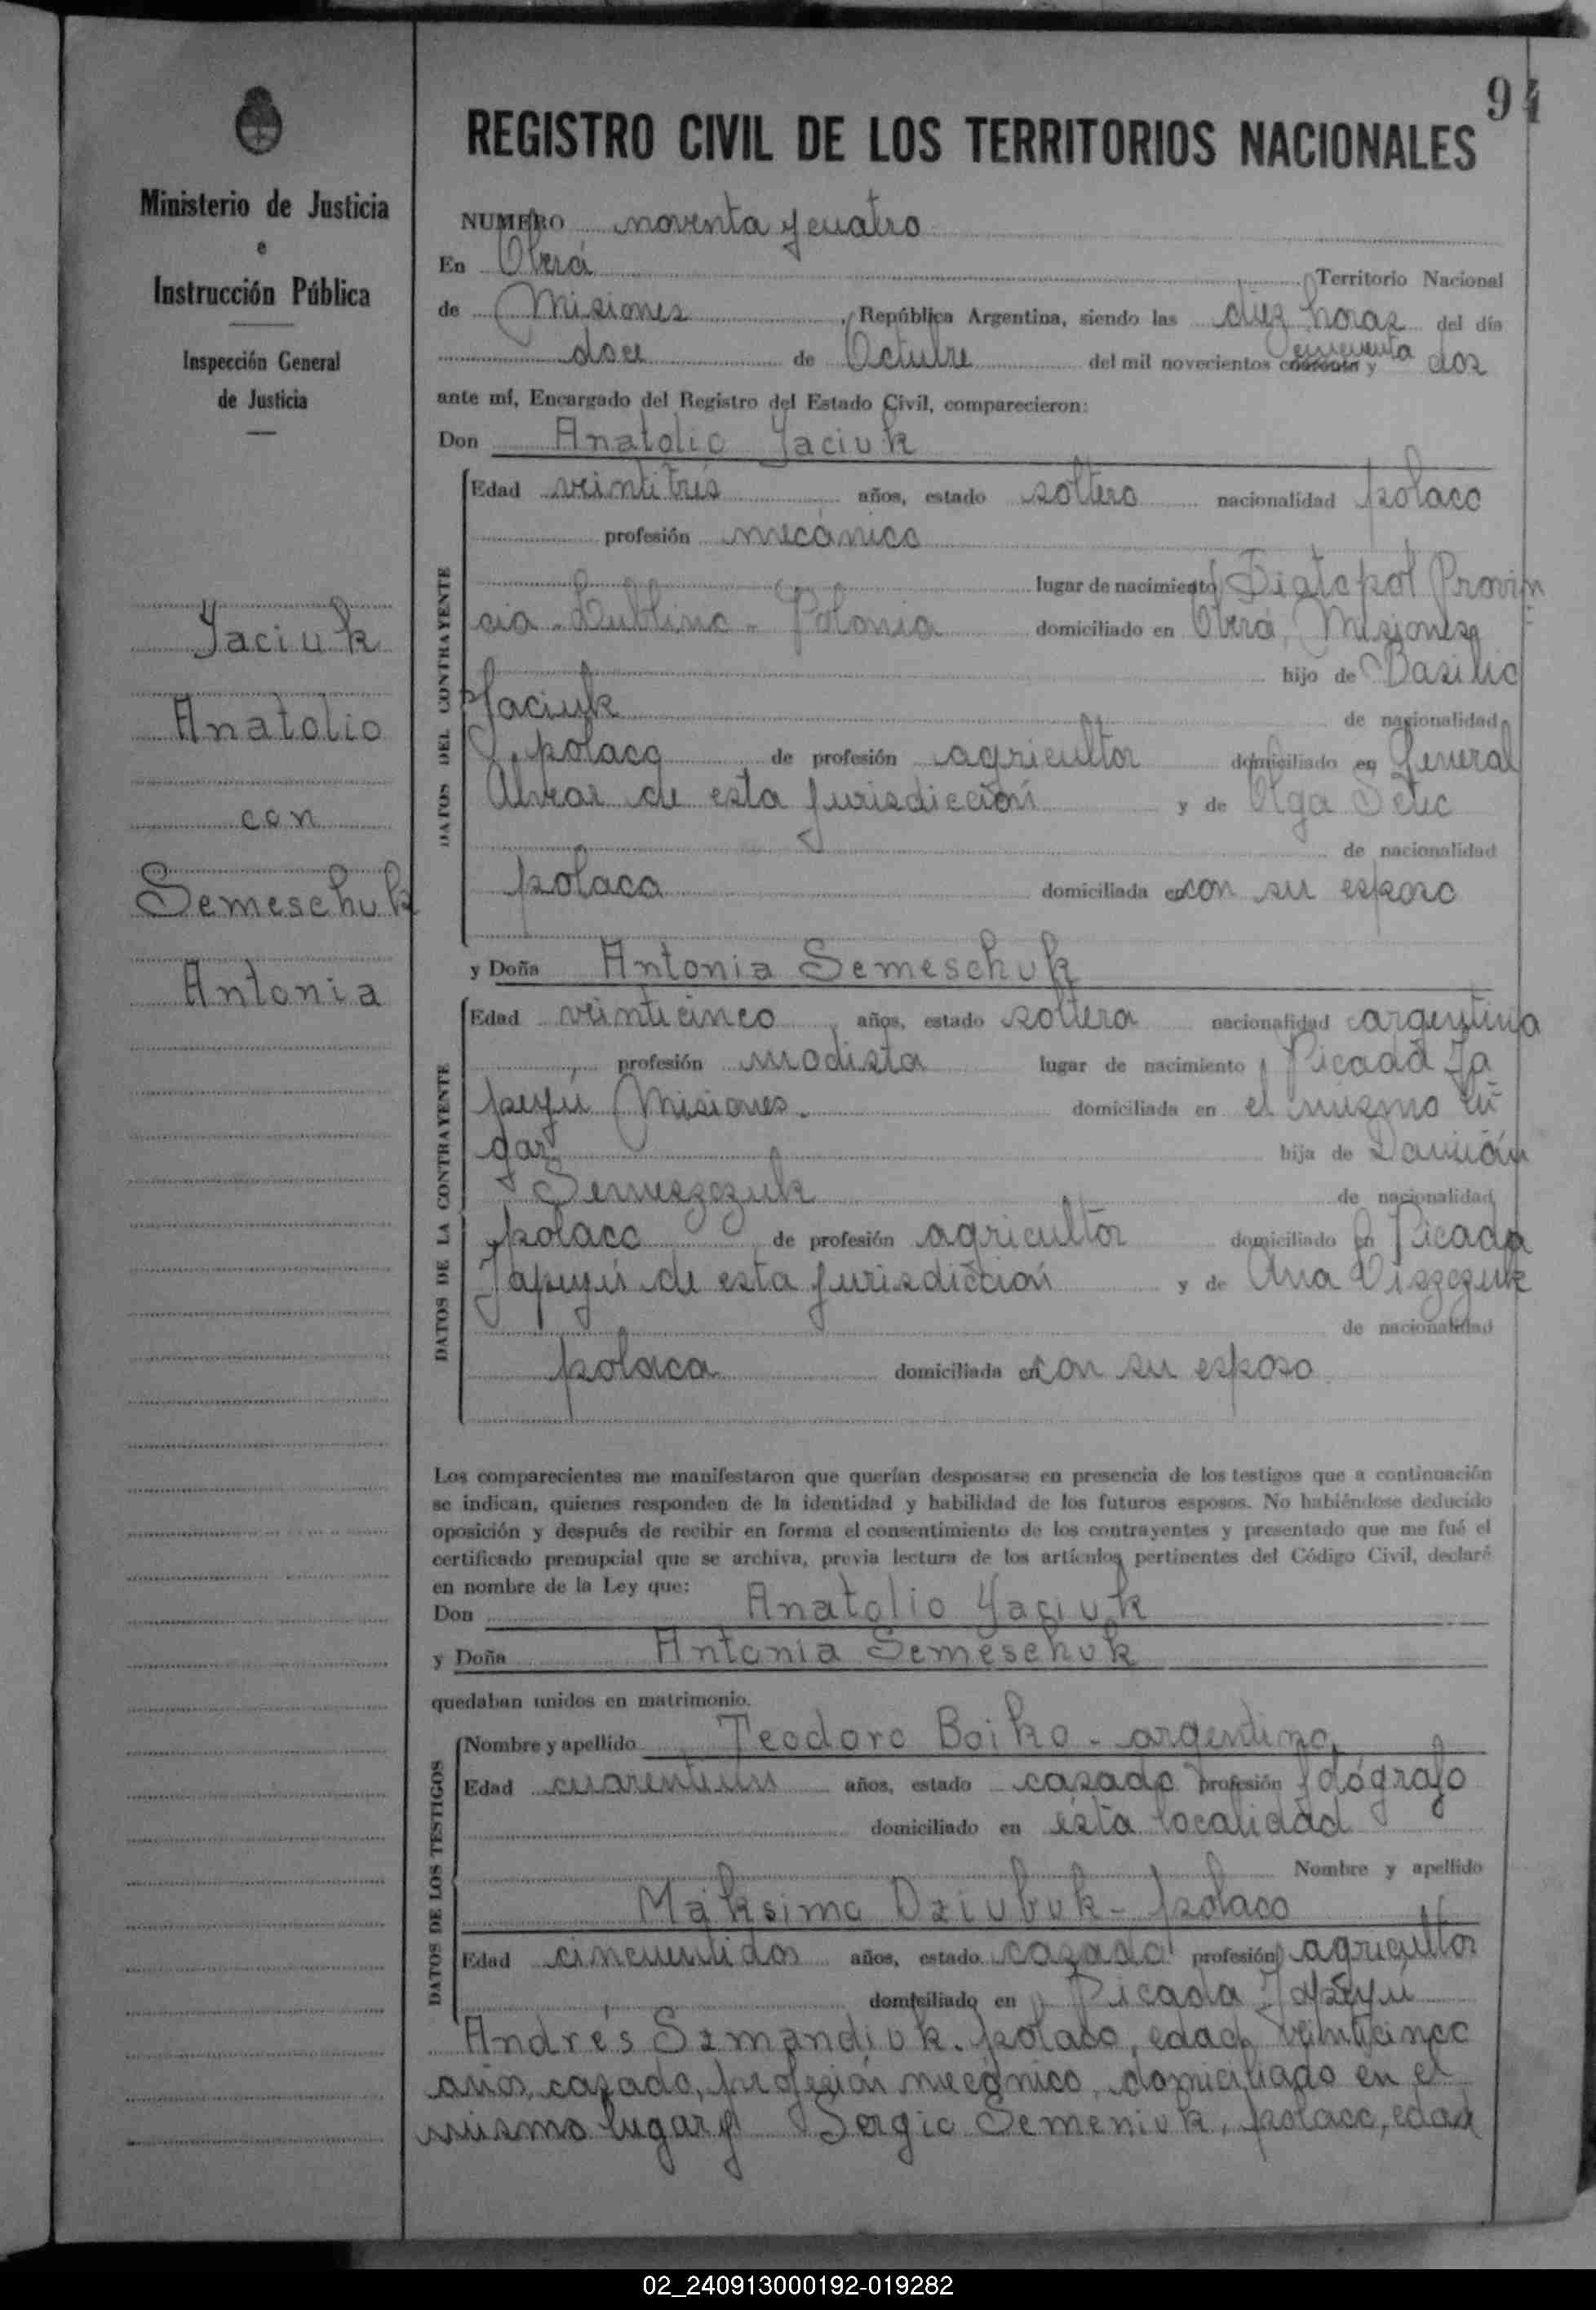 94
REGISTRO CIVIL DE LOS TERRITORIOS NACIONALES
Ministerio de Justicia
e
Instrucción Pública
Inspección General
de Justicia
Yaciuk
Anatolio
con
Semeschuk
Antonia
NUMERO noventa y cuatro
En Oberá Territorio Nacional
de Misiones, República Argentina, siendo las diez horas del día
doce de Octubre del mil novecientos cuarenta y cincuenta dos
ante mí, Encargado del Registro del Estado Civil, comparecieron:
Don Anatolio Yaciuk
DATOS DEL CONTRAYENTE
Edad veintitrés años, estado soltero nacionalidad polaco
profesión mecánico
lugar de nacimiento Provin
cia - Lublino - Polonia domiciliado en Oberá, Misiones
hijo de Basilio
Yaciuk de nacionalidad
polaco de profesión agricultor domiciliado en General
Alvear de esta jurisdicción y de Olga
de nacionalidad
polaca domiciliada en con su esposo
y Doña Antonia Semeschuk
DATOS DE LA CONTRAYENTE
Edad veinticinco años, estado soltera nacionalidad argentina
profesión modista lugar de nacimiento Picada Ya
peyú Misiones. domiciliada en el mismo lu
gar hija de Damián
Semeszczuk de nacionalidad
polaco de profesión agricultor domiciliado en Picada
Yapeyú de esta jurisdicción y de Ana
de nacionalidad
polaca domiciliada en con su esposo
Los comparecientes me manifestaron que querían desposarse en presencia de los testigos que a continuación
se indican, quienes responden de la identidad y habilidad de los futuros esposos. No habiéndose deducido
oposición y después de recibir en forma el consentimiento de los contrayentes y presentado que me fué el
certificado prenupcial que se archiva, previa lectura de los artículos pertinentes del Código Civil, declaré
en nombre de la Ley que:
Don Anatolio Yaciuk
y Doña Antonia Semeschuk
quedaban unidos en matrimonio.
DATOS DE LOS TESTIGOS
Nombre y apellido Teodoro Boiko - argentino,
Edad años, estado casado profesión fotógrafo
domiciliado en ésta localidad
Nombre y apellido
Maksimo Dziubuk - polaco
Edad cincuentidos años, estado casado profesión agricultor
domiciliado en Picada Yapeyú
Andrés Szmandiuk. polaco, edad veinticinco
años, casado, profesión mecánico, domiciliado en el
mismo lugar y Sergio Semeniuk, polaco, edad
02_240913000192-019282